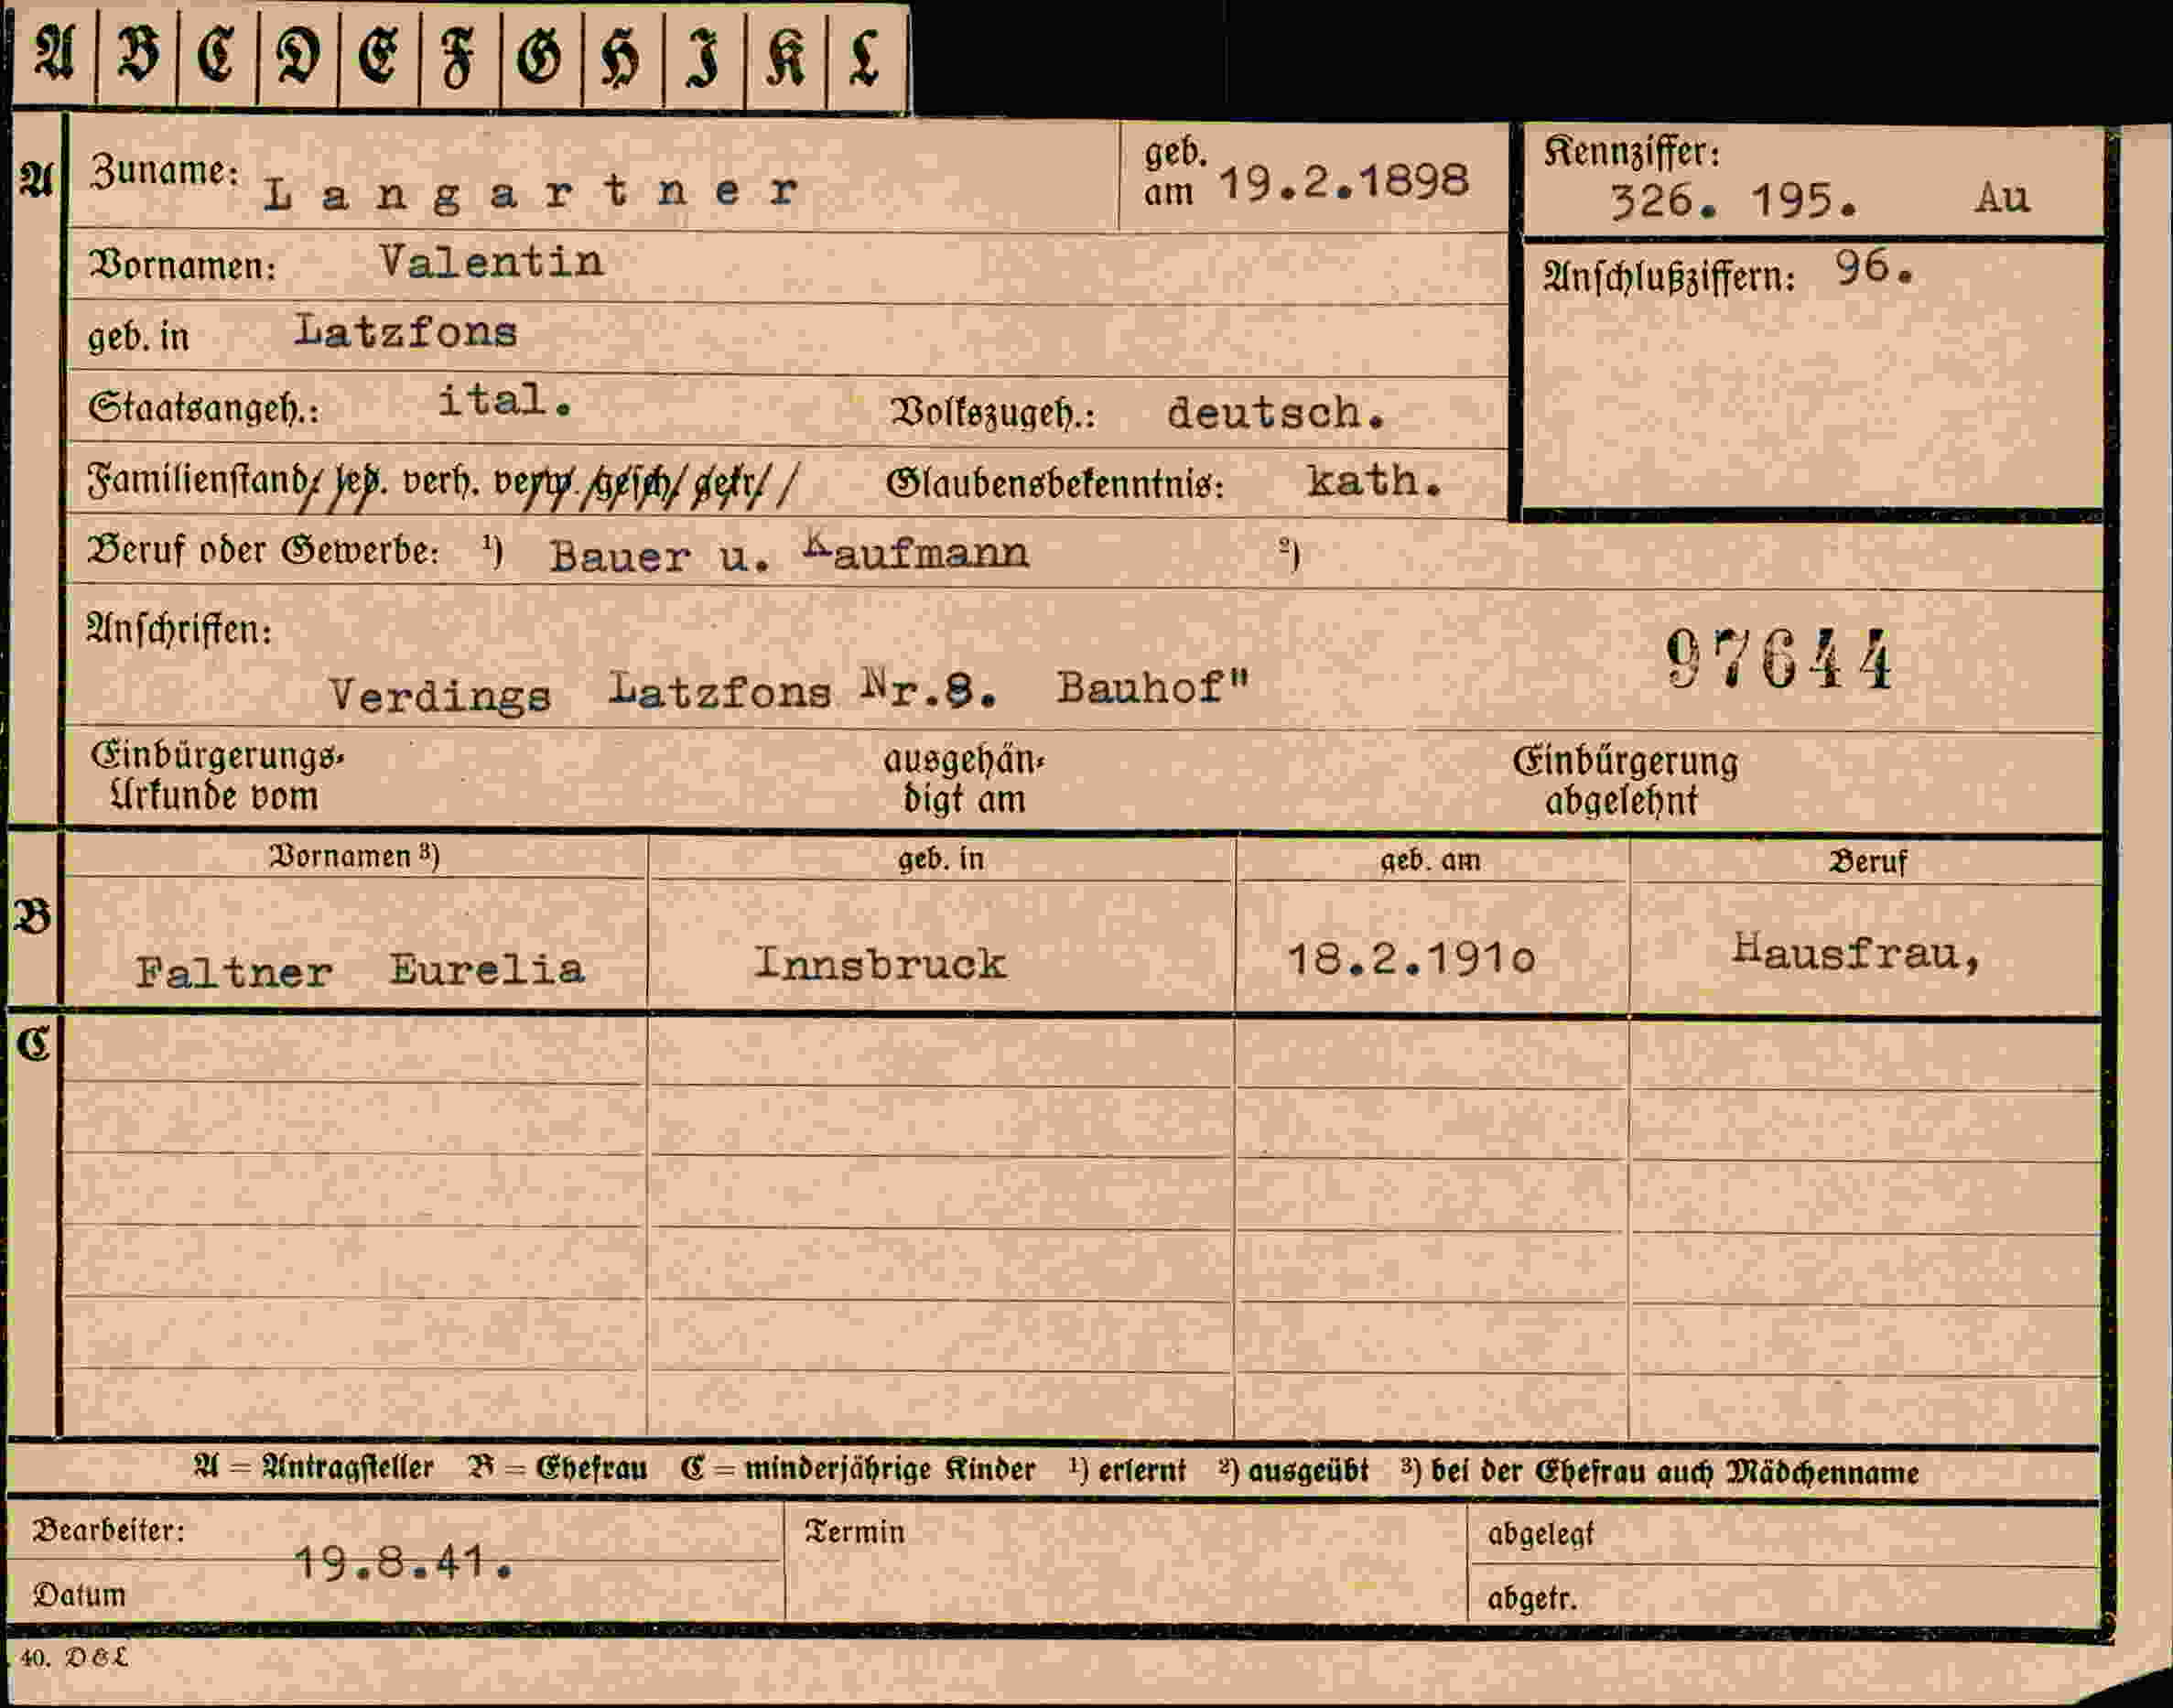 A B C D E F G H I K L
A Zuname: Langartner geb. am 19.2.1898
Kennziffer: 326. 195. Au
Vornamen: Valentin
Anschlußziffern: 96.
geb. in Latzfons
Staatsangeh.: ital. Volkszugeh.: deutsch.
Familienstand: led. verh. verw. gesch. getr. Glaubensbekenntnis: kath.
Beruf oder Gewerbe: ¹) Bauer u. Kaufmann ²)
Anschriften:
97644
Verdings Latzfons Nr.8. Bauhof"
Einbürgerungs- ausgehän- Einbürgerung
Urkunde vom digt am abgelehnt
Vornamen ³) geb. in geb. am Beruf
B Faltner Eurelia Innsbruck 18.2.191o Hausfrau,
C
A = Antragsteller B = Ehefrau C = minderjährige Kinder ¹) erlernt ²) ausgeübt ³) bei der Ehefrau auch Mädchenname
Bearbeiter: Termin abgelegt
19.8.41.
Datum abgetr.
40. DEL